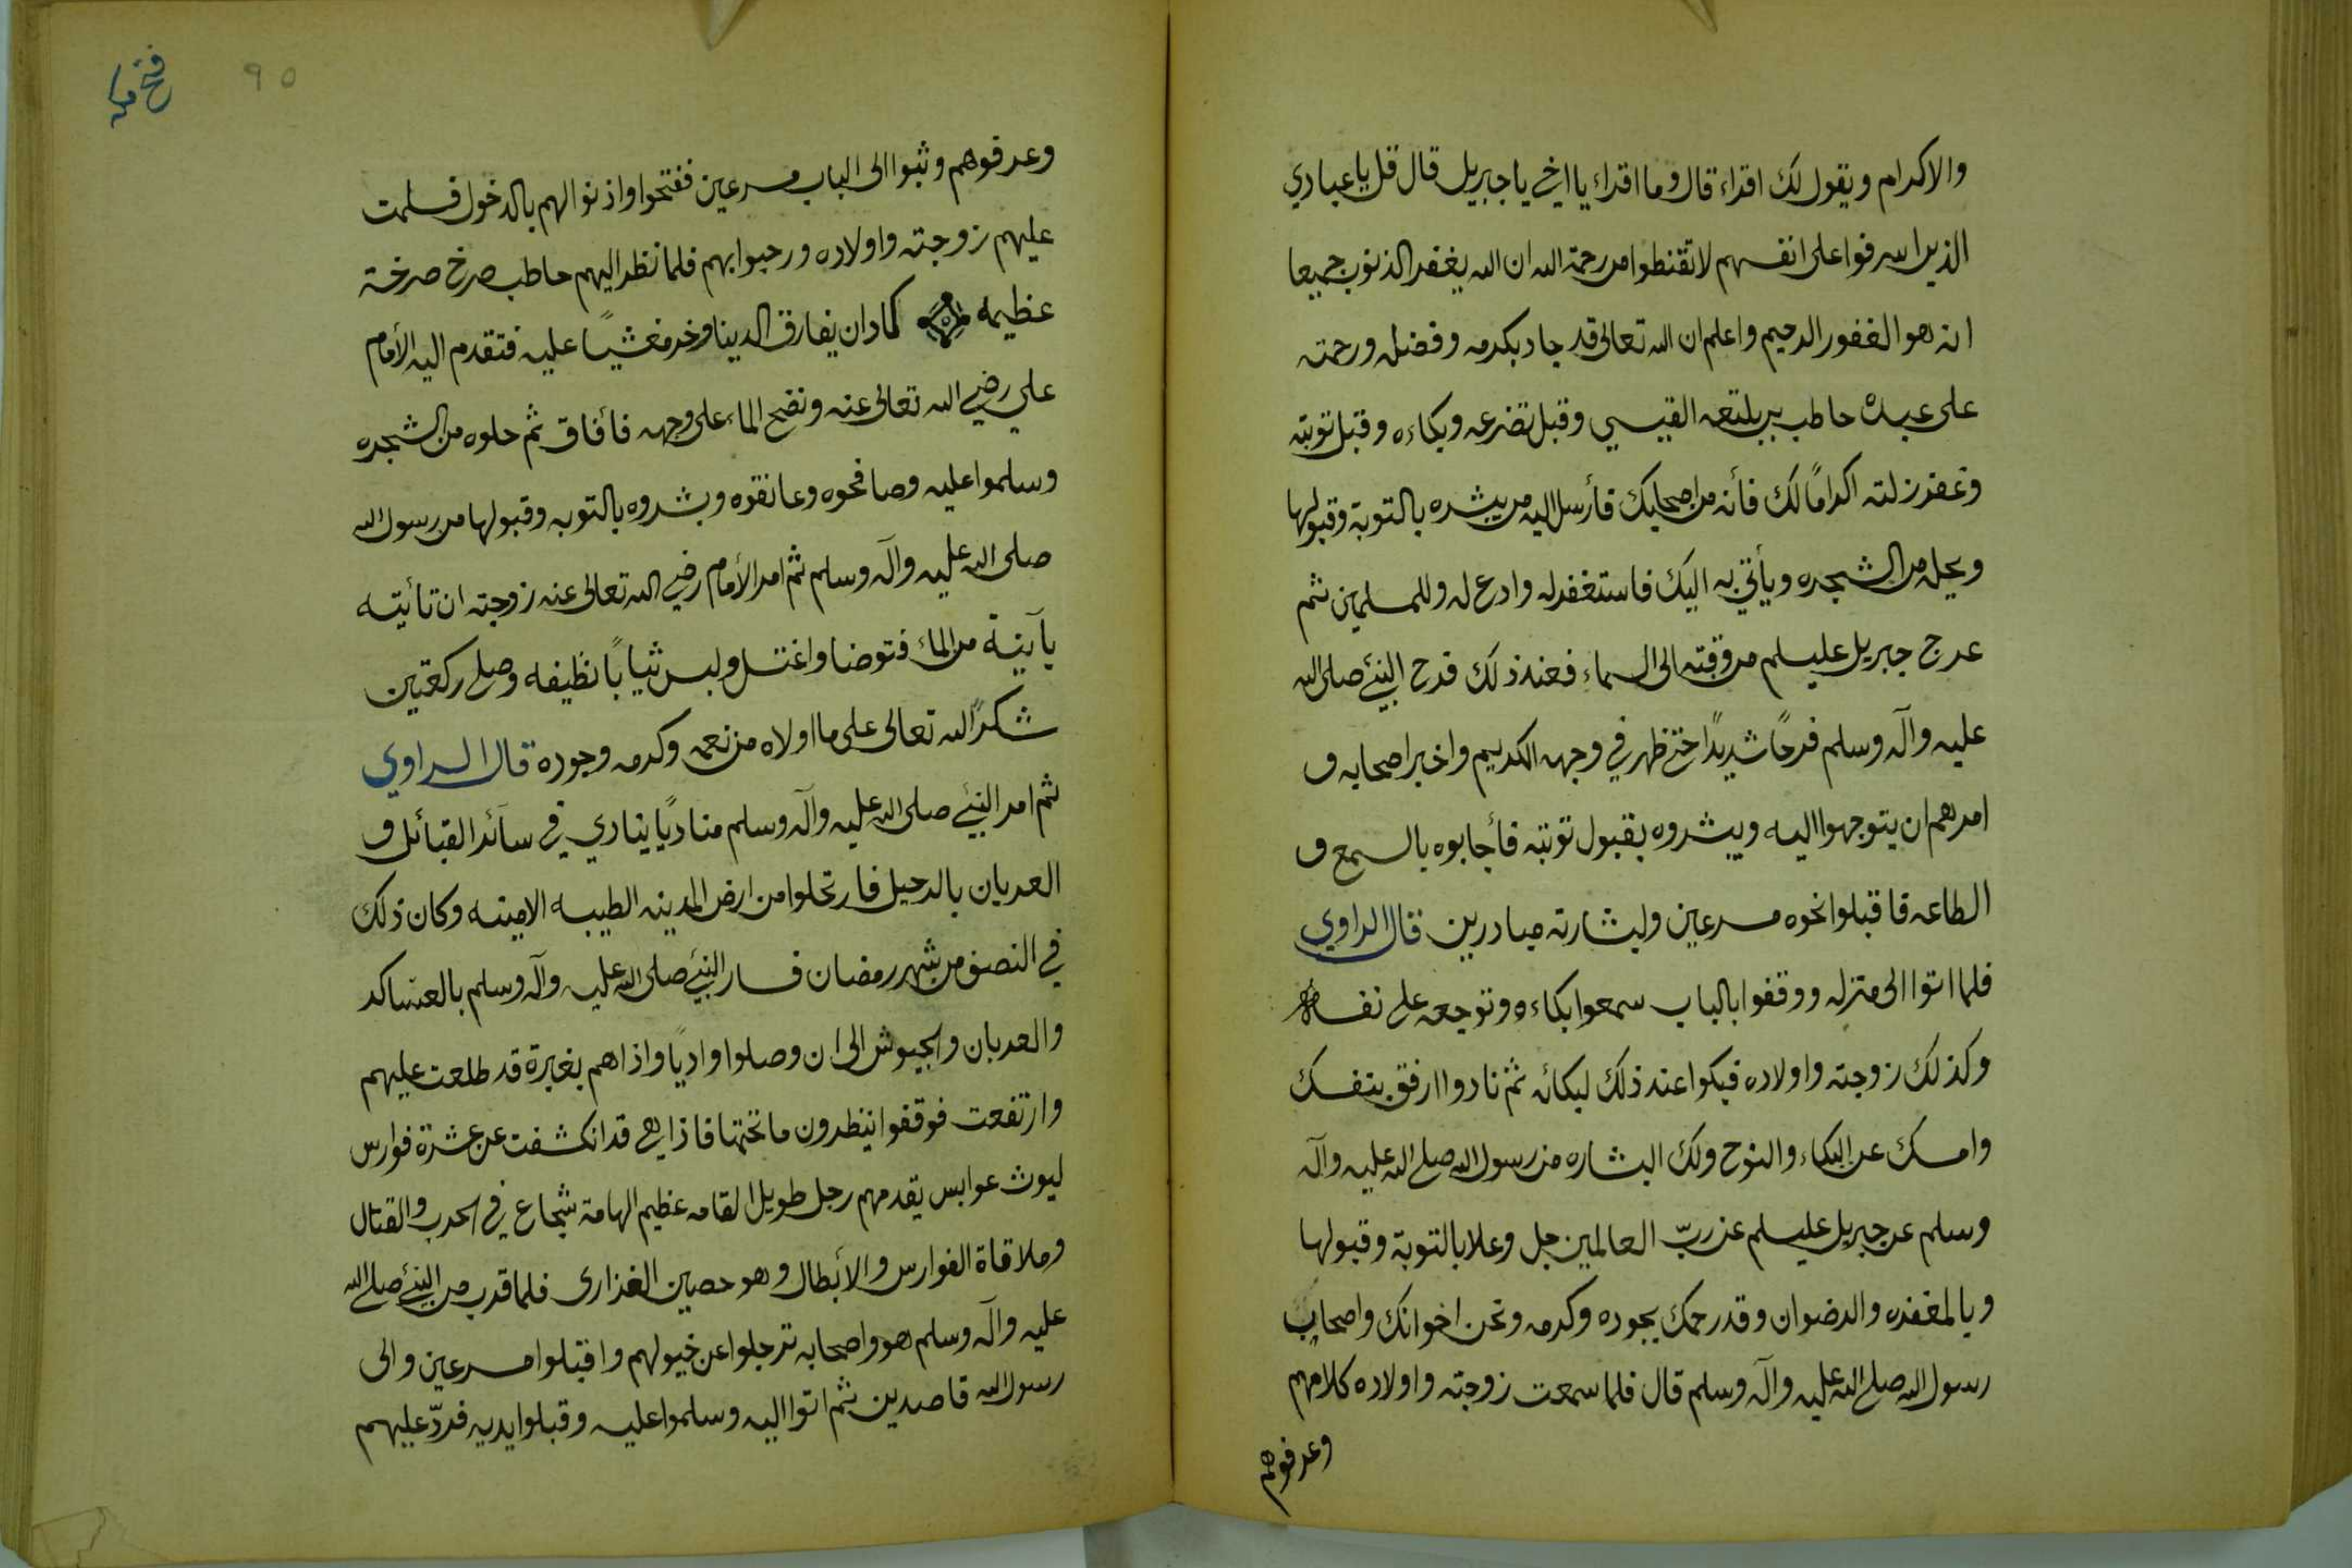 والاكرام ويقول لك اقراء قال وما اقراء يا اخي يا جبريل قال قل يا عبادي
الذين اسرفوا على انفسهم لا تقنطوا من رحمة الله ان الله يغفر الذنوب جميعا
انه هو الغفور الرحيم واعلم ان الله تعالى قد جاد بكرمه وفضله ورحمته
على عبده حاطب بن بلتعه القيسي وقبل تضرعه وبكاءه وقبل توبته
وغفر زلته اكرامًا لك فأنه من اصحابك فأرسل اليه من يبشره بالتوبة وقبولها
ويحله من الشجره ويأتي به اليك فاستغفر له وادع له وللمسلمين ثم
عرج جبريل عليسلم من وقته الى السماء فعند ذلك فرح النبيء صلى الله
عليه وآله وسلم فرحًا شديدًا حتى ظهر في وجهه الكريم واخبر اصحابه و
امرهم ان يتوجهوا اليه ويبشروه بقبول توبته فأجابوه بالسمع و
الطاعه فاقبلوا نحوه مسرعين ولبشارته مبادرين قال الراوي
فلما اتوا الى منزله ووقفوا بالباب سمعوا بكاءه وتوجعه على نفسه
وكذلك زوجته واولاده فبكوا عند ذلك لبكائه ثم نادوا ارفق بنفسك
وامسك عن البكاء والنوح ولك البشاره من رسول الله صلى الله عليه وآله
وسلم عن جبريل عليسلم عن ربّ العالمين جل وعلا بالتوبة وقبولها
وبالمغفره والرضوان وقد رحمك بجوده وكرمه ونحن اخوانك واصحاب
رسول الله صلى الله عليه وآله وسلم قال فلما سمعت زوجته واولاده كلامهم
وعرفوهم
٩٥
فتح مكه
وعرفوهم وثبوا الى الباب مسرعين ففتحوا واذنوا لهم بالدخول فسلمت
عليهم زوجته واولاده ورحبوا بهم فلما نظر اليهم حاطب صرخ صرخة
عظيمه كاد ان يفارق الدينا وخر مغشيًا عليه فتقدم اليه الأمام
علي رضي الله تعالى عنه ونضح الماء على وجهه فأفاق ثم حلوه من الشجره
وسلموا عليه وصافحوه وعانقوه وبشروه بالتوبه وقبولها من رسول الله
صلى الله عليه وآله وسلم ثم امر الأمام رضي الله تعالى عنه زوجته ان تأتيه
بآنية من الماء فتوضا واغتسل ولبس ثيابًا نظيفه وصلى ركعتين
شكرًا لله تعالى على ما اولاه من نعمه وكرمه وجوده قال الراوي
ثم امر النبيء صلى الله عليه وآله وسلم مناديًا ينادي في سائر القبائل و
العربان بالرحيل فارتحلوا من ارض المدينه الطيبه الامينه وكان ذلك
في النصف من شهر رمضان فسار النبيء صلى الله عليه وآله وسلم بالعساكر
والعربان والجيوش الى ان وصلوا واديًا واذاهم بغبرة قد طلعت عليهم
وارتفعت فوقفوا ينظرون ما تحتها فاذا هي قد انكشفت عن عشرة فوارس
ليوث عوابس يقدمهم رجل طويل القامه عظيم الهامة شجاع في الحرب والقتال
وملاقاة الفوارس والأبطال وهو حصين الفزارى فلما قرب من النبيء صلى الله
عليه وآله وسلم هو واصحابه ترجلوا عن خيولهم واقبلوا مسرعين والى
رسول الله قاصدين ثم اتوا اليه وسلموا عليه وقبلوا ايديه فردّ عليهم